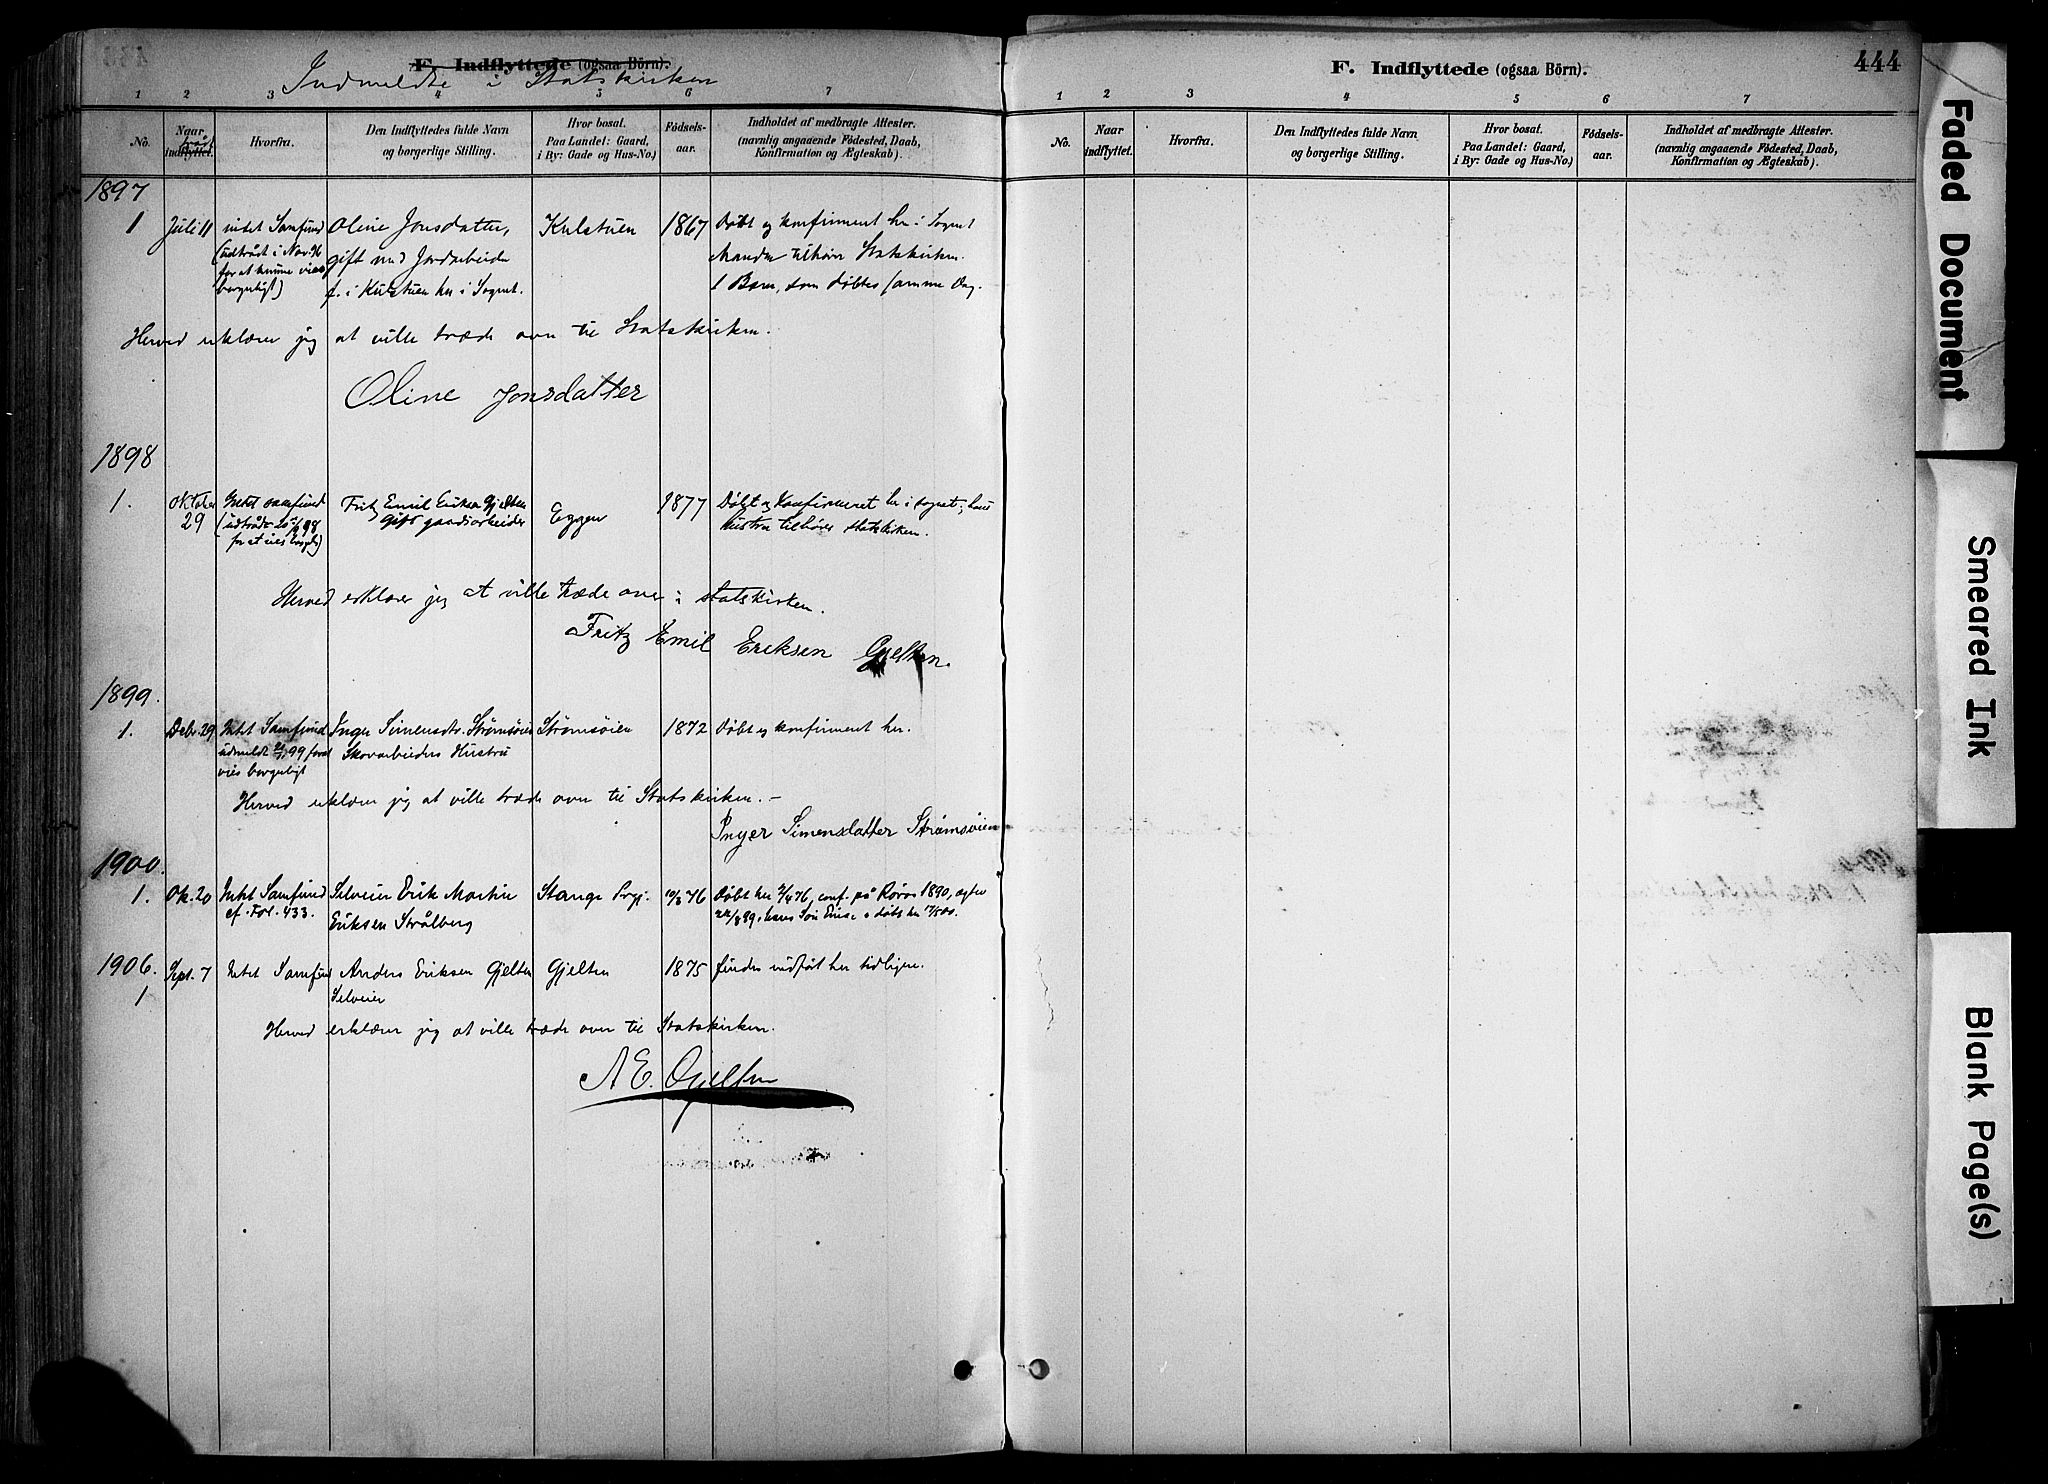 F. Indflyttede (ogsaa Börn).
Indmeldte i Statskirken
1 2 3 4 5 6 7
No.
Naar indflyttet.
trådt
Hvorfra.
Den Indflyttedes fulde Navn og borgerlige Stilling.
Hvor bosat. Paa Landet: Gaard, i By: Gade og Hus-No.)
Fødsels-aar.
Indholdet af medbragte Attester. (navnlig angaaende Fødested, Daab, Konfirmation og Ægteskab).
1897
1 Juli 11 intet Samfund Oline Jonsdatter, Kulstuen 1867 Døbt og konfirmeret her i Sognet
(udtrådt i Nov. 96 gift med Jordarbeider Manden tilhører Statskirken.
for at kunne vies f. i Kulstuen her i Sognet. 1 Barn, som døbtes samme Dag.
borgerligt)
Herved erklærer jeg at ville træde over til Statskirken.
Oline Jonsdatter
1898
1. Oktober Intet samfund Fritz Emil Eriksen Gjelten Eggen 1877 Døbt og Konfirmeret her i sognet; hans
29 (udtrådt 98 gift gaardsarbeider hustru tilhører statskirken.
for at vies borgerl.)
Herved erklærer jeg at ville træde over i statskirken.
Fritz Emil Eriksen Gjelten.
1899.
1. Debr. 29 Intet Samfund Inger Simensdtr. Strømsøien Strømsøien 1872 Døbt og konfirmeret her.
udmeldt 99 for at Skovarbeiders Hustru
vies borgerligt
Herved erklærer jeg at ville træde over til Statskirken. –
Inger Simensdatter Strømsøien
1900.
1. Ok. 20 Intet Samfund Selveier Erik Martin Stange Prgj. 10/3 76 Døbt her 2/4 76, conf. på Røros 1890, egter
cf. Fol. 433. Eriksen Strålberg 99, hans Søn døbt her
1906. Sept. 7 Intet Samfund Anders Eriksen Gjelten Gjelten 1875 findes indført her tidligere.
1 Selveier
Herved erklærer jeg at ville træde over til Statskirken.
A E. Gjelten
F. Indflyttede (ogsaa Börn).
444
1 2 3 4 5 6 7
No.
Naar indflyttet.
Hvorfra.
Den Indflyttedes fulde Navn og borgerlige Stilling.
Hvor bosat. Paa Landet: Gaard, i By: Gade og Hus-No.)
Fødsels-aar.
Indholdet af medbragte Attester. (navnlig angaaende Fødested, Daab, Konfirmation og Ægteskab).
Faded Document
Smeared Ink
Blank Page(s)